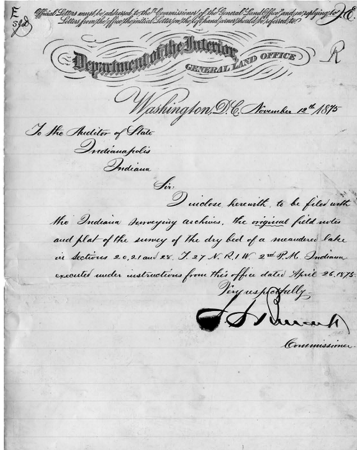 Official Letters must be addressed to the "Commissioner of the General Land Office," and in replying to
Letters from the office, the initial Letter on the left hand corner should be referred to.
E
R
Department of the Interior,
GENERAL LAND OFFICE
Washington, D.C. November 12th 1875
To the Auditor of State
Indianapolis
Indiana
Sir:
I inclose herewith, to be filed with
the Indiana surveying archives, the original field notes
and plat of the survey of the dry bed of a meandered lake
in sections 20, 21 and 28, T. 27 N. R. 1 W. 2nd P.M. Indiana
executed under instructions from this office dated April 26, 1875.
Very respectfully
Commissioner